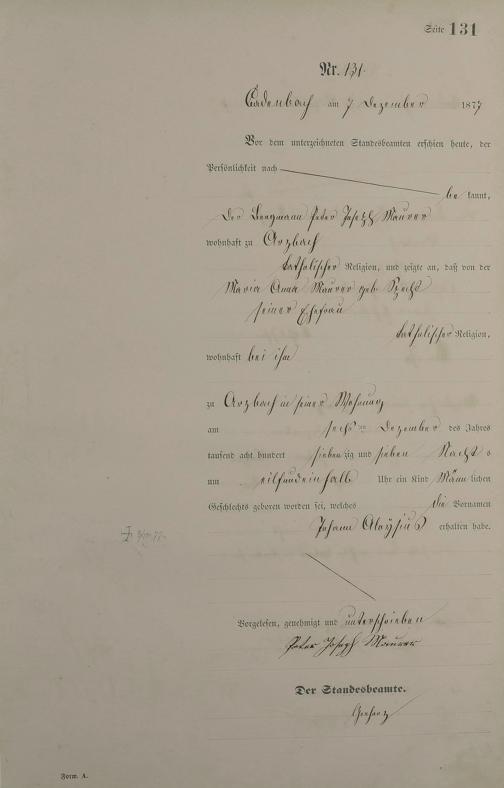 Seite 131
Nr. 131.
Cadenbach am 7 Dezember 1877
Vor dem unterzeichneten Standesbeamten erschien heute, der
Persönlichkeit nach
be kannt,
Der Bergmann Peter Joseph Maurer
wohnhaft zu Arzbach
katholischer Religion, und zeigte an, daß von der
Maria Anna Maurer geb
seiner Ehefrau
katholischer Religion,
wohnhaft bei ihm
zu Arzbach in seiner Wohnung
am sechs ten Dezember des Jahres
tausend acht hundert sieben zig und sieben Nachts
um eilfundeinhalb Uhr ein Kind Männlichen
Geschlechts geboren worden sei, welches die Vornamen
Johann Aloysius erhalten habe.
Vorgelesen, genehmigt und unterschrieben
Peter Joseph Maurer
Der Standesbeamte.
Form. A.